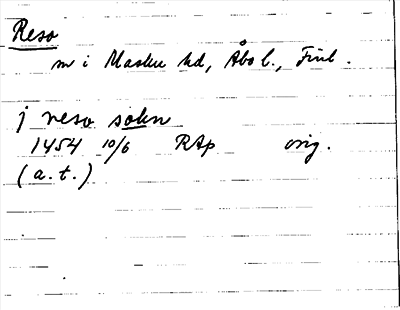 Reso
sn i Masku hd, Åbo l., Finl.
j reso sokn
1454 10/6 RAp orig.
(a. t.)